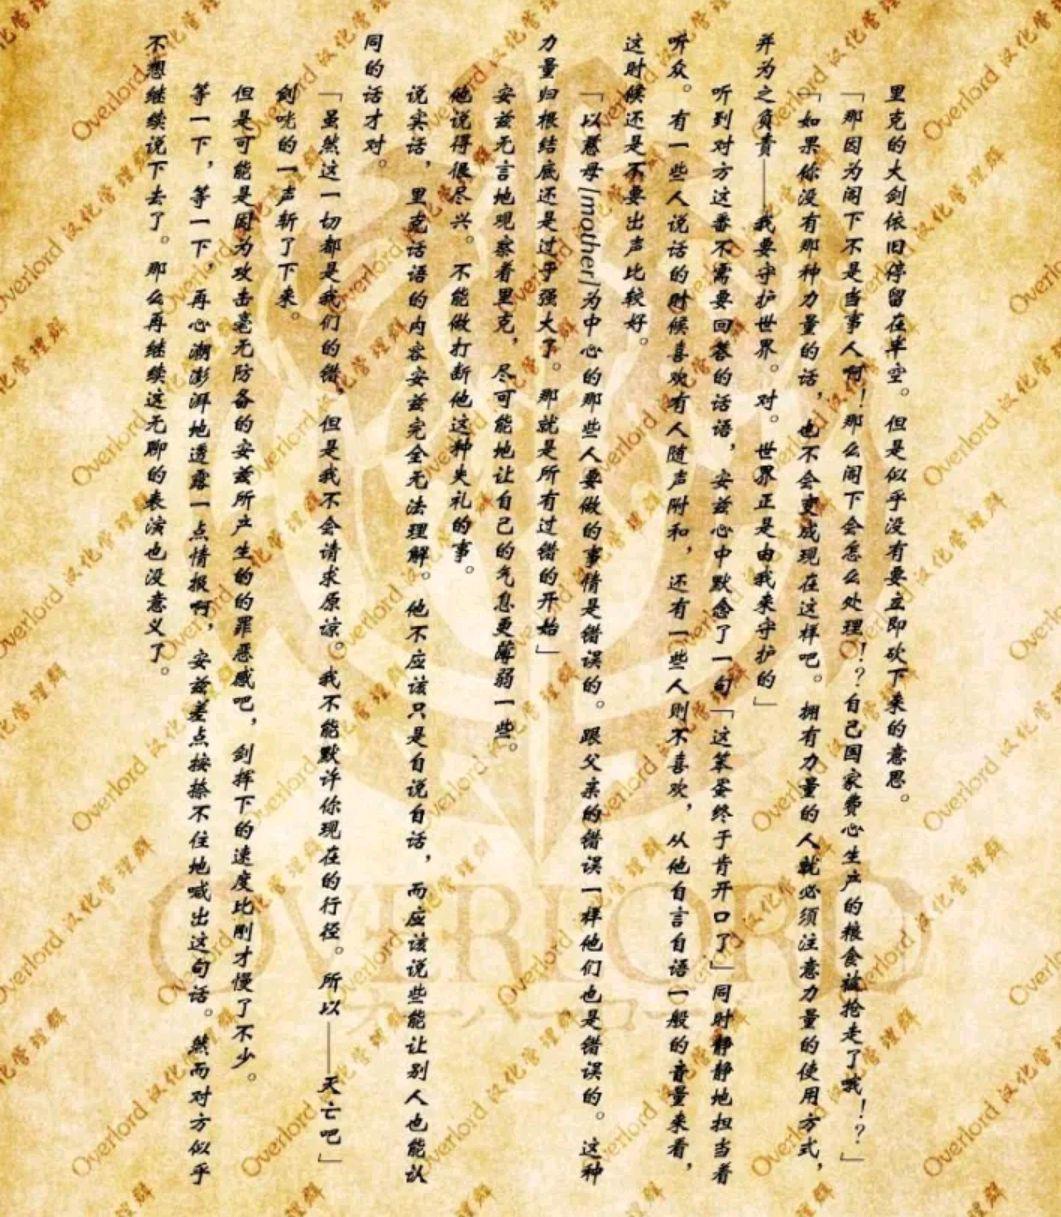 里克的大剑依旧停留在半空。但是似乎没有要立即砍下来的意思。
「那因为阁下不是当事人啊！那么阁下会怎么处理！？自己国家费心生产的粮食被抢走了哦！？」
「如果你没有那种力量的话，也不会变成现在这样吧。拥有力量的人就必须注意力量的使用方式，
并为之负责——我要守护世界。对。世界正是由我来守护的」
听到对方这番不需要回答的话语，安兹心中默念了一句「这笨蛋终于肯开口了」同时静静地担当着
听众。有一些人说话的时候喜欢有人随声附和，还有一些人则不喜欢，从他自言自语一般的音量来看，
这时候还是不要出声比较好。
「以慈母[mother]为中心的那些人要做的事情是错误的。跟父亲的错误一样他们也是错误的。这种
力量归根结底还是过于强大了。那就是所有过错的开始」
安兹无言地观察着里克，尽可能地让自己的气息更薄弱一些。
他说得很尽兴。不能做打断他这种失礼的事。
说实话，里克话语的内容安兹完全无法理解。他不应该只是自说自话，而应该说些能让别人也能认
同的话才对。
「虽然这一切都是我们的错，但是我不会请求原谅。我不能默许你现在的行径。所以——灭亡吧」
剑咣的一声斩了下来。
但是可能是因为攻击毫无防备的安兹所产生的的罪恶感吧，剑挥下的速度比刚才慢了不少。
等一下，等一下，再心潮澎湃地透露一点情报啊，安兹差点按捺不住地喊出这句话。然而对方似乎
不想继续说下去了。那么再继续这无聊的表演也没意义了。
OVERLORD
オーバーロード
Overlord 汉化管理群